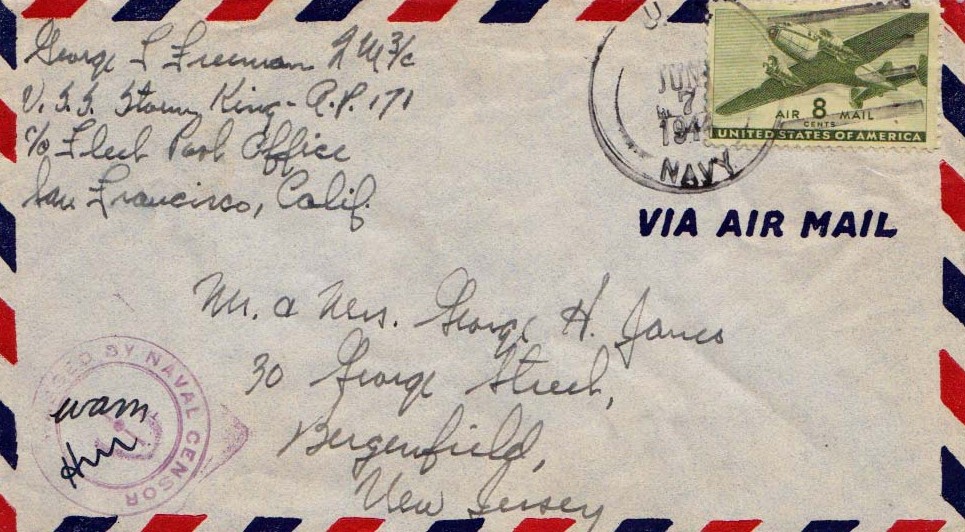 George L Freeman RM3/c
U.S.S. Storm King - A.P. 171
c/o Fleet Post Office
San Francisco, Calif.
JUN
7
NAVY
AIR 8 MAIL
CENTS
UNITED STATES OF AMERICA
VIA AIR MAIL
Mr. & Mrs. George H. Janes
30 George Street,
Bergenfield,
New Jersey
BY NAVAL CENSOR